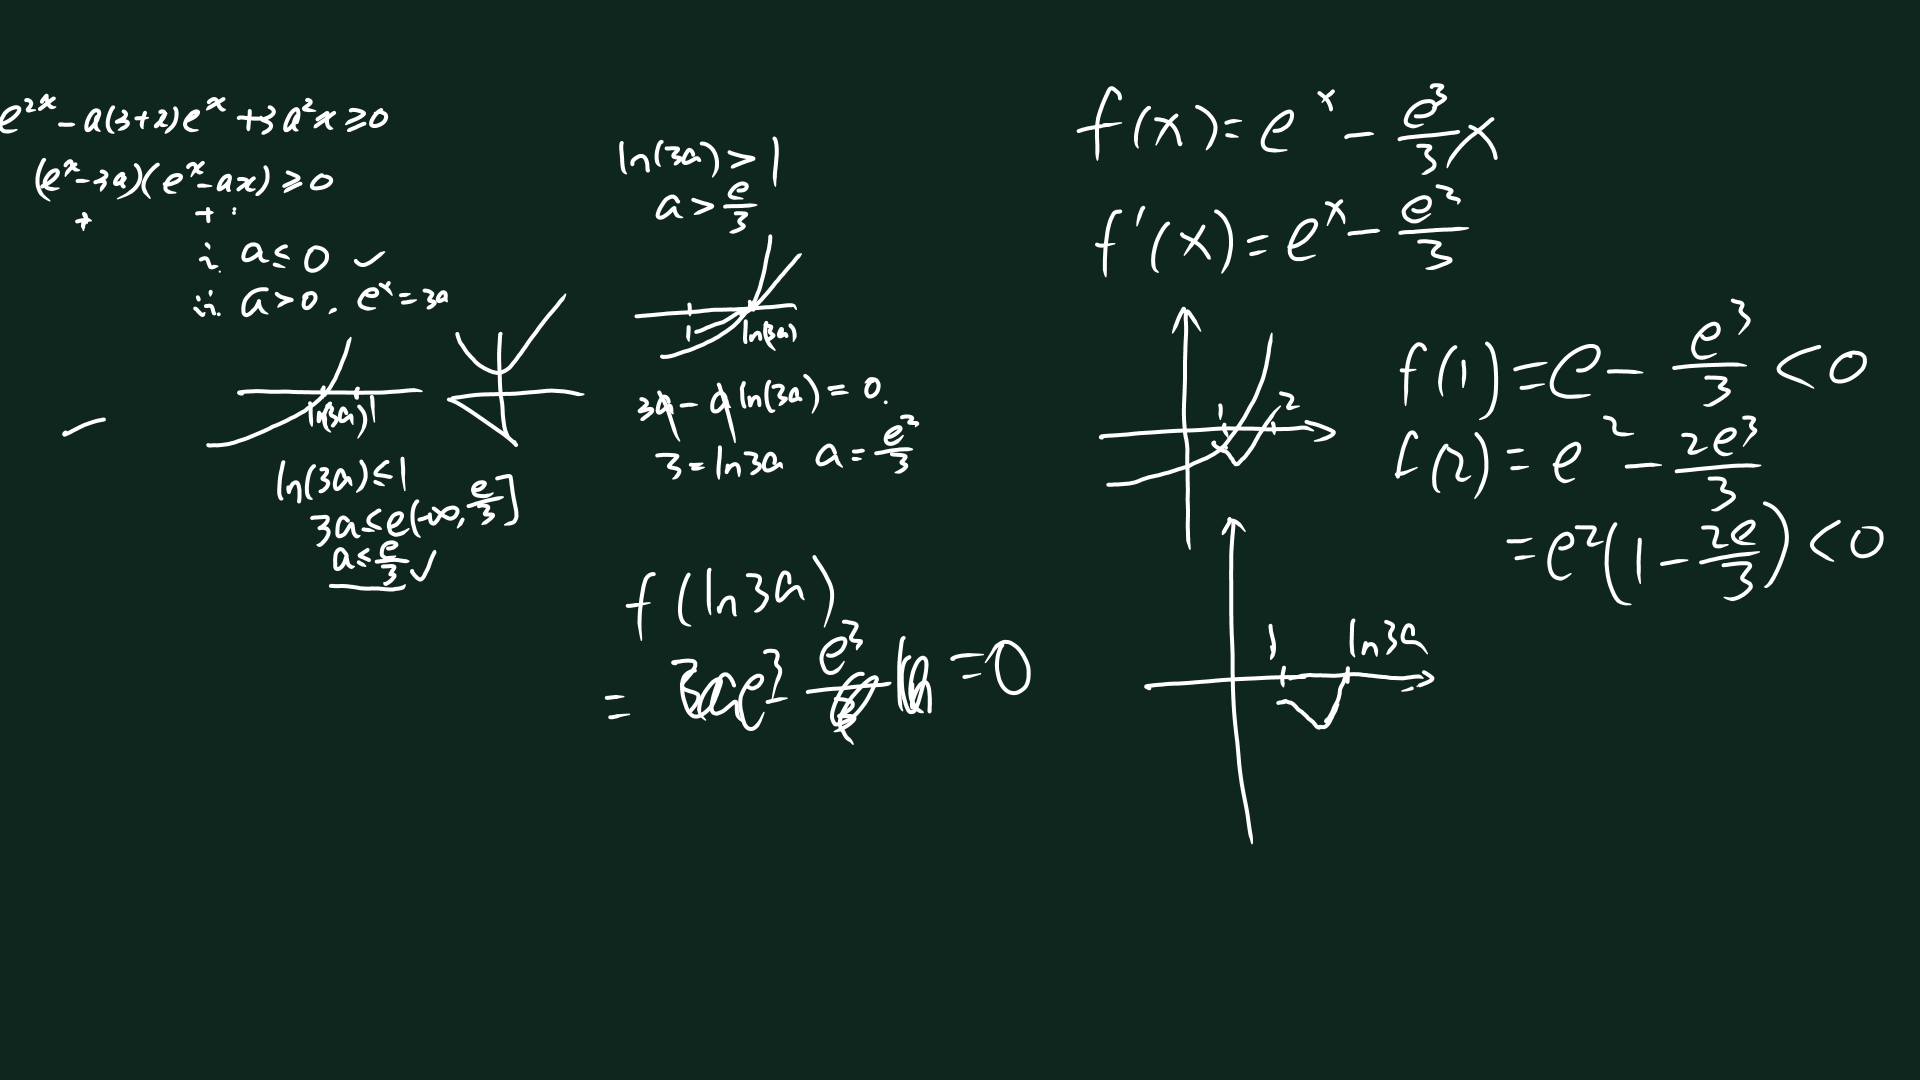 e^{2x} - a(3+2)e^x + 3a²x ≥ 0
(e^x - 3a)(e^x - ax) ≥ 0
+ +
i. a ≤ 0 ✓
ii. a > 0. e^x = 3a
ln(3a) 1
ln(3a) ≤ 1
3a ≤ e (-∞, e/3]
a ≤ e/3 ✓
ln(3a) > 1
a > e/3
1 ln(3a)
3a - a ln(3a) = 0.
3 = ln3a a = e²/3
f(ln3a)
= e³ e³ = 0
f(x) = e^x - e³/3 x
f'(x) = e^x - e²/3
1 2
f(1) = e - e³/3 < 0
f(2) = e² - 2e³/3
= e²(1 - 2e/3) < 0
1 ln3a